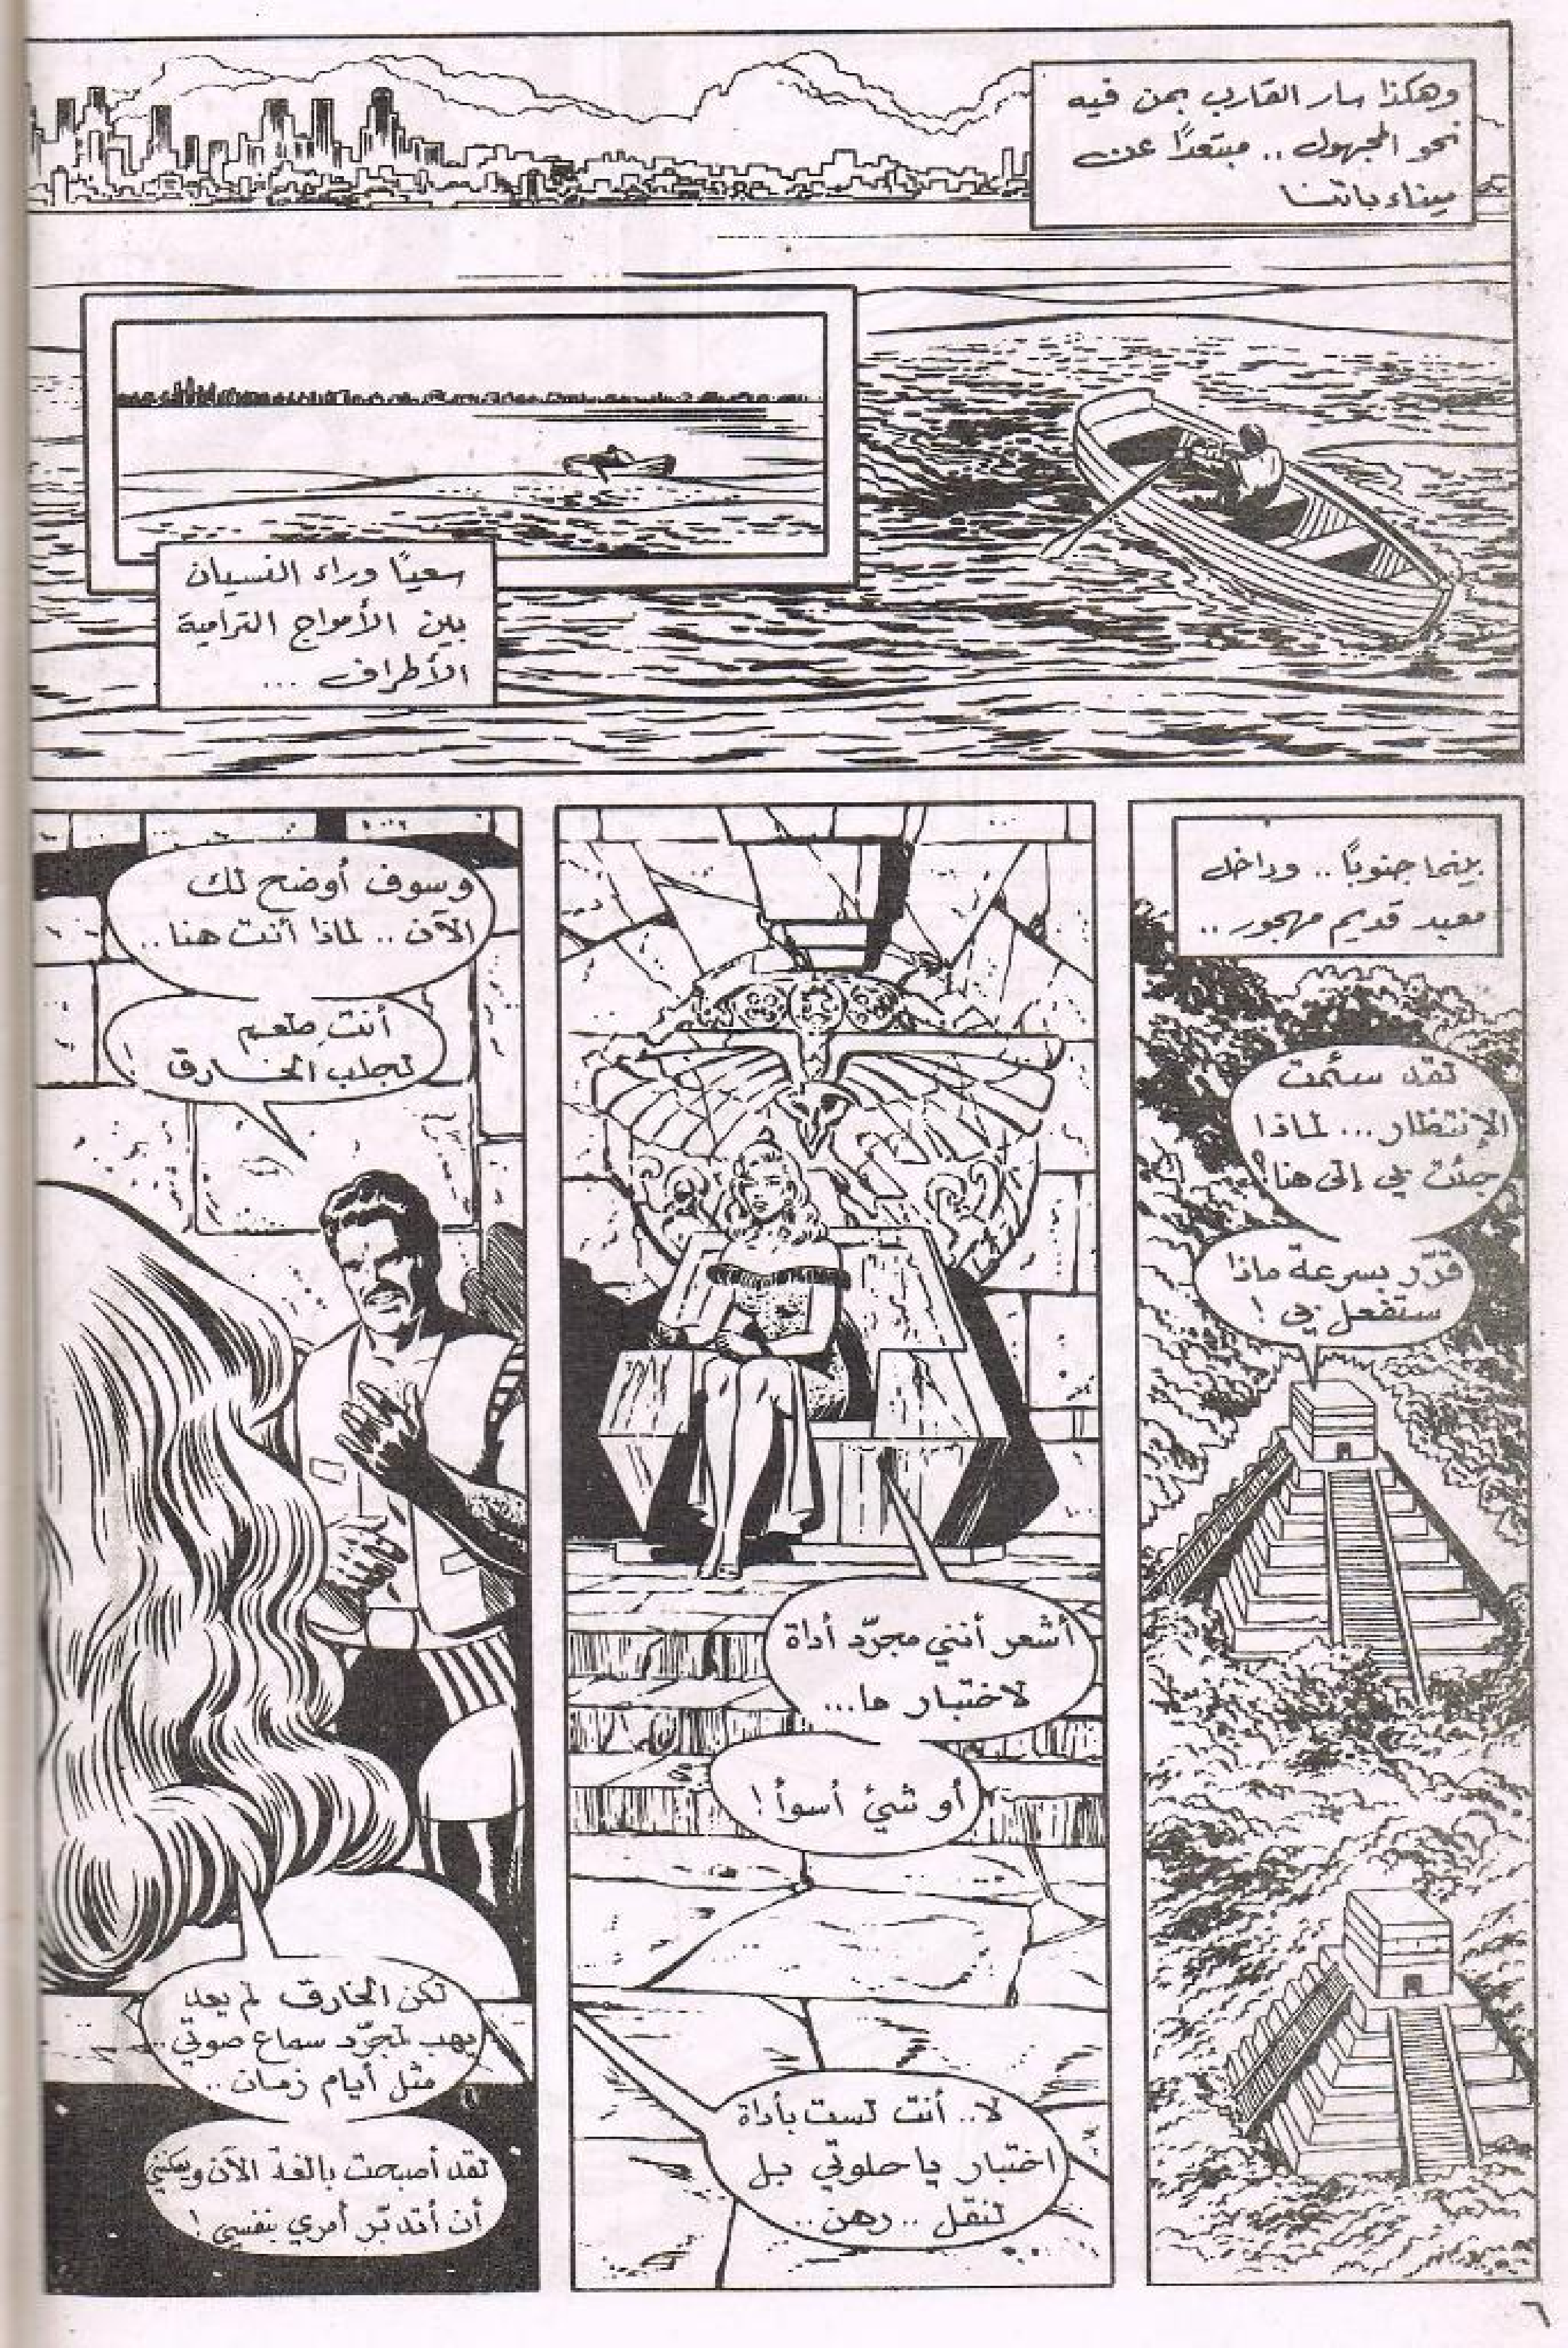 وهكذا سار القارب بمن فيه
نحو المجهول .. مبتعدًا عن
ميناء باتنسا
سعيًا وراء النسيان
بين الأمواج الترامية
الأطراف ...
بينما جنوبًا .. وداخل
معبد قديم مهجور ..
لقد سئمت
الإنتظار... لماذا
جئت بي إلى هنا؟
قرّر بسرعة ماذا
ستفعل بي !
أشعر أنني مجرّد أداة
لاختبار ما...
أو شئ أسوأ !
لا.. أنت لست بأداة
اختبار يا حلوتي بل
لنقل .. رهن ..
وسوف أوضح لك
الآن .. لماذا أنت هنا ..
أنت طعم
لجلب الخارق !
لكن الخارق لم يعد
يهب لمجرّد سماع صوتي ..
مثل أيام زمان ..
لقد أصبحت بالغة الآن ويمكنني
أن أتدبّر أمري بنفسي !
٦